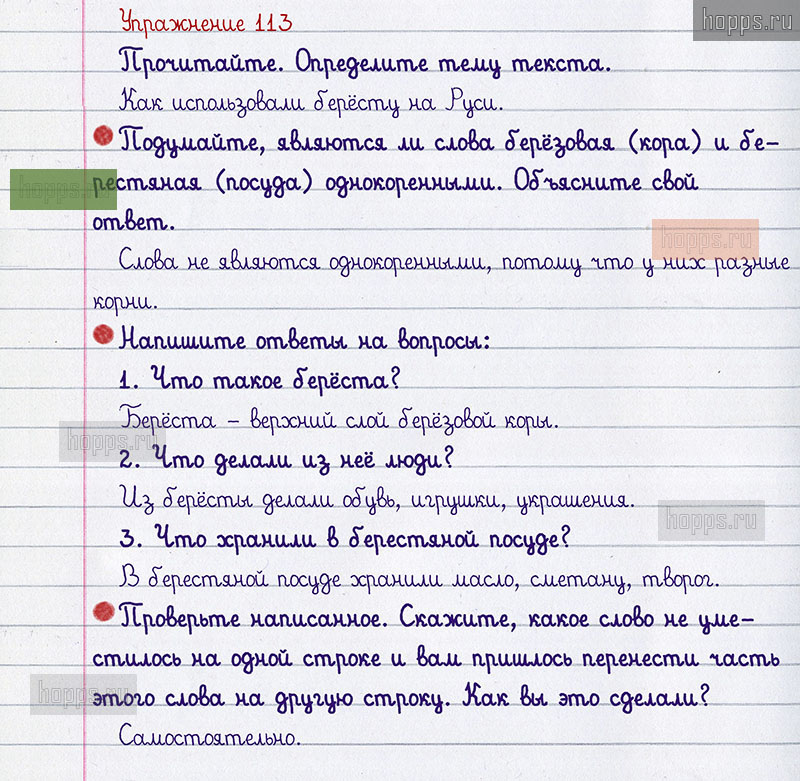 Упражнение 113
hopps.ru
Прочитайте. Определите тему текста.
Как использовали берёсту на Руси.
Подумайте, являются ли слова берёзовая (кора) и бе-
рестяная (посуда) однокоренными. Объясните свой
hopps.ru
ответ.
hopps.ru
Слова не являются однокоренными, потому что у них разные
корни.
Напишите ответы на вопросы:
1. Что такое берёста?
Берёста – верхний слой берёзовой коры.
hopps.ru
2. Что делали из неё люди?
Из берёсты делали обувь, игрушки, украшения.
hopps.ru
3. Что хранили в берестяной посуде?
В берестяной посуде хранили масло, сметану, творог.
Проверьте написанное. Скажите, какое слово не уме-
стилось на одной строке и вам пришлось перенести часть
hopps.ru
этого слова на другую строку. Как вы это сделали?
Самостоятельно.